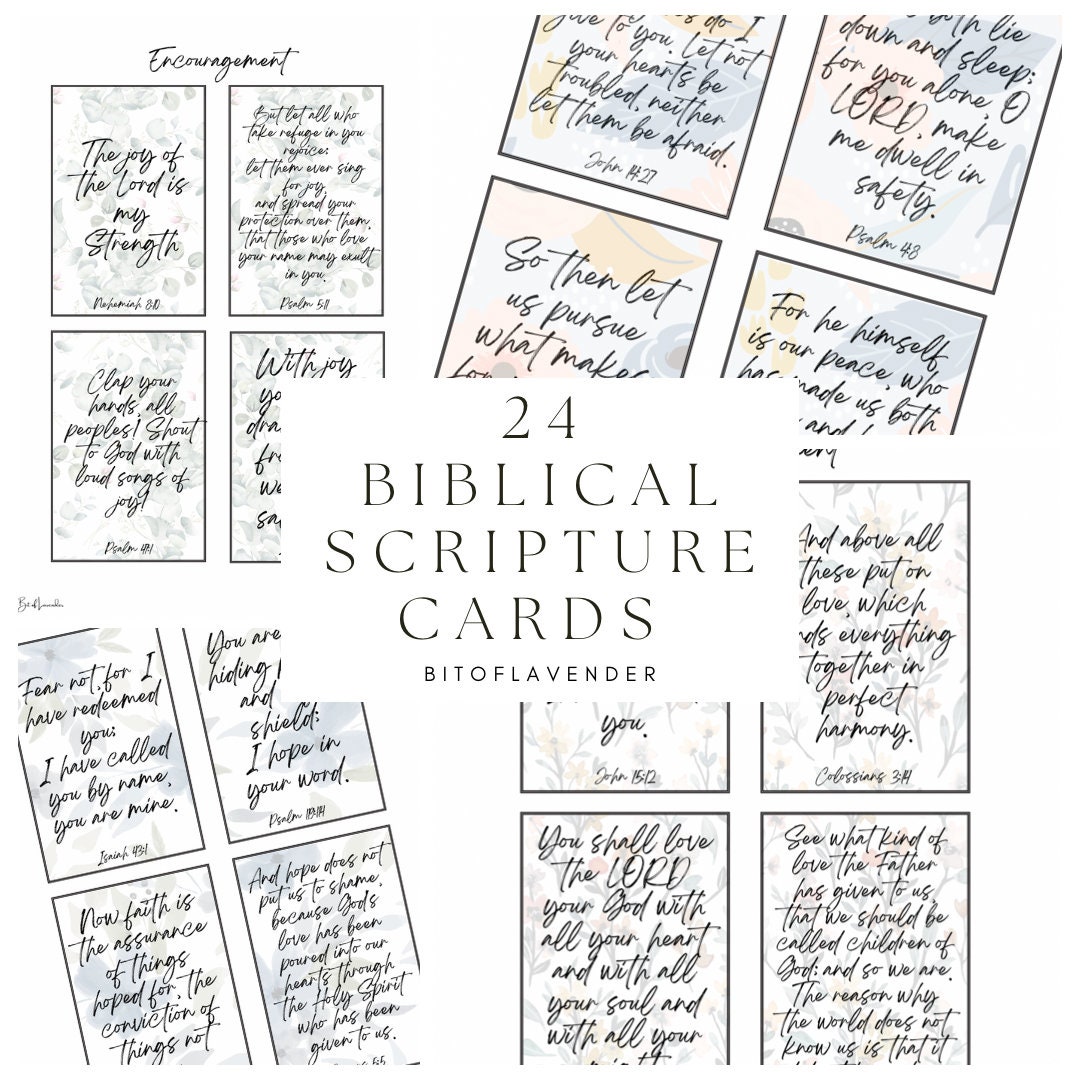 Encouragement
The joy of
the Lord is
my
Strength
Nehemiah 8:10
But let all who
take refuge in you
rejoice;
let them ever sing
for joy,
and spread your
protection over them,
that those who love
your name may exult
in you.
Psalm 5:11
Clap your
hands, all
peoples! Shout
to God with
loud songs of
joy!
Psalm 47:1
With joy
Bit of Lavender
give to you. Let not
your hearts be
troubled, neither
let them be afraid.
John 14:27
both lie
down and sleep;
for you alone, O
LORD, make
me dwell in
safety.
Psalm 4:8
So then let
us pursue
what makes
For he himself
is our peace, who
has made us both
24
BIBLICAL
SCRIPTURE
CARDS
BITOFLAVENDER
Fear not, for I
have redeemed
you;
I have called
you by name,
you are mine.
Isaiah 43:1
You are
hiding
and
shield;
I hope in
your word.
Psalm 119:114
Now faith is
the assurance
of things
hoped for, the
conviction of
things not
And hope does not
put us to shame,
because God's
love has been
poured into our
hearts through
the Holy Spirit
who has been
given to us.
5:5
you.
John 15:12
And above all
these put on
love, which
everything
together in
perfect
harmony.
Colossians 3:14
You shall love
the LORD
your God with
all your heart
and with all
your soul and
with all your
See what kind of
love the Father
has given to us,
that we should be
called children of
God; and so we are.
The reason why
the world does not
know us is that it